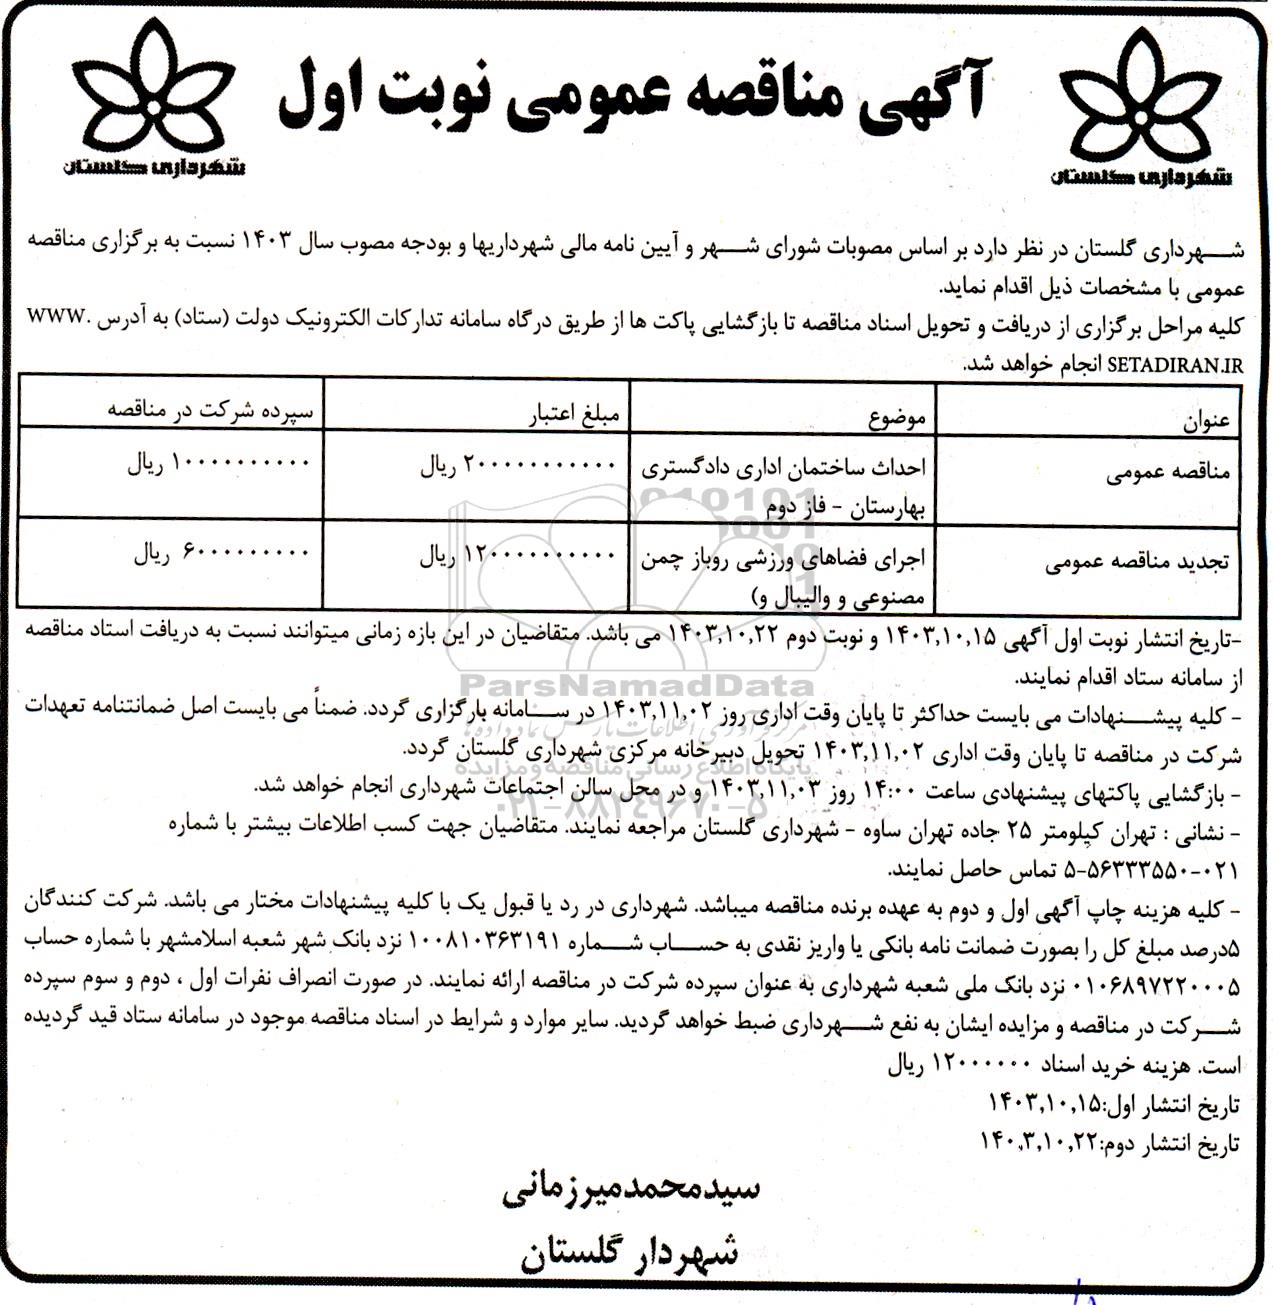 آگهی مناقصه عمومی نوبت اول
شهرداری گلستان
شهرداری گلستان
شهرداری گلستان در نظر دارد بر اساس مصوبات شورای شهر و آیین نامه مالی شهرداریها و بودجه مصوب سال ۱۴۰۳ نسبت به برگزاری مناقصه
عمومی با مشخصات ذیل اقدام نماید.
کلیه مراحل برگزاری از دریافت و تحویل اسناد مناقصه تا بازگشایی پاکت ها از طریق درگاه سامانه تدارکات الکترونیک دولت (ستاد) به آدرس WWW.
SETADIRAN.IR انجام خواهد شد.
عنوان موضوع مبلغ اعتبار سپرده شرکت در مناقصه
مناقصه عمومی احداث ساختمان اداری دادگستری ۲۰۰۰۰۰۰۰۰۰۰۰ ریال ۱۰۰۰۰۰۰۰۰۰۰ ریال
بهارستان - فاز دوم
تجدید مناقصه عمومی اجرای فضاهای ورزشی روباز چمن ۱۲۰۰۰۰۰۰۰۰۰۰ ریال ۶۰۰۰۰۰۰۰۰۰ ریال
مصنوعی و والیبال و)
-تاریخ انتشار نوبت اول آگهی ۱۴۰۳,۱۰,۱۵ و نوبت دوم ۱۴۰۳,۱۰,۲۲ می باشد. متقاضیان در این بازه زمانی میتوانند نسبت به دریافت استاد مناقصه
از سامانه ستاد اقدام نمایند.
- کلیه پیشنهادات می بایست حداکثر تا پایان وقت اداری روز ۱۴۰۳,۱۱,۰۲ در سامانه بارگزاری گردد. ضمناً می بایست اصل ضمانتنامه تعهدات
شرکت در مناقصه تا پایان وقت اداری ۱۴۰۳,۱۱,۰۲ تحویل دبیرخانه مرکزی شهرداری گلستان گردد.
- بازگشایی پاکتهای پیشنهادی ساعت ۱۴:۰۰ روز ۱۴۰۳,۱۱,۰۳ و در محل سالن اجتماعات شهرداری انجام خواهد شد.
- نشانی : تهران کیلومتر ۲۵ جاده تهران ساوه - شهرداری گلستان مراجعه نمایند. متقاضیان جهت کسب اطلاعات بیشتر با شماره
۰۲۱-۵۶۳۳۳۵۵۰-۵ تماس حاصل نمایند.
- کلیه هزینه چاپ آگهی اول و دوم به عهده برنده مناقصه میباشد. شهرداری در رد یا قبول یک با کلیه پیشنهادات مختار می باشد. شرکت کنندگان
۵درصد مبلغ کل را بصورت ضمانت نامه بانکی یا واریز نقدی به حساب شماره ۱۰۰۸۱۰۳۶۳۱۹۱ نزد بانک شهر شعبه اسلامشهر با شماره حساب
۰۱۰۶۸۹۷۲۲۰۰۰۵ نزد بانک ملی شعبه شهرداری به عنوان سپرده شرکت در مناقصه ارائه نمایند. در صورت انصراف نفرات اول ، دوم و سوم سپرده
شرکت در مناقصه و مزایده ایشان به نفع شهرداری ضبط خواهد گردید. سایر موارد و شرایط در اسناد مناقصه موجود در سامانه ستاد قید گردیده
است. هزینه خرید اسناد ۱۲۰۰۰۰۰۰ ریال
تاریخ انتشار اول:۱۴۰۳,۱۰,۱۵
تاریخ انتشار دوم:۱۴۰۳,۱۰,۲۲
سیدمحمدمیرزمانی
شهردار گلستان
ParsNamadData
مرکز فرآوری اطلاعات پارس نماد داده ها
پایگاه اطلاع رسانی مناقصه و مزایده
۰۲۱-۸۸۳۴۹۶۷۰-۵